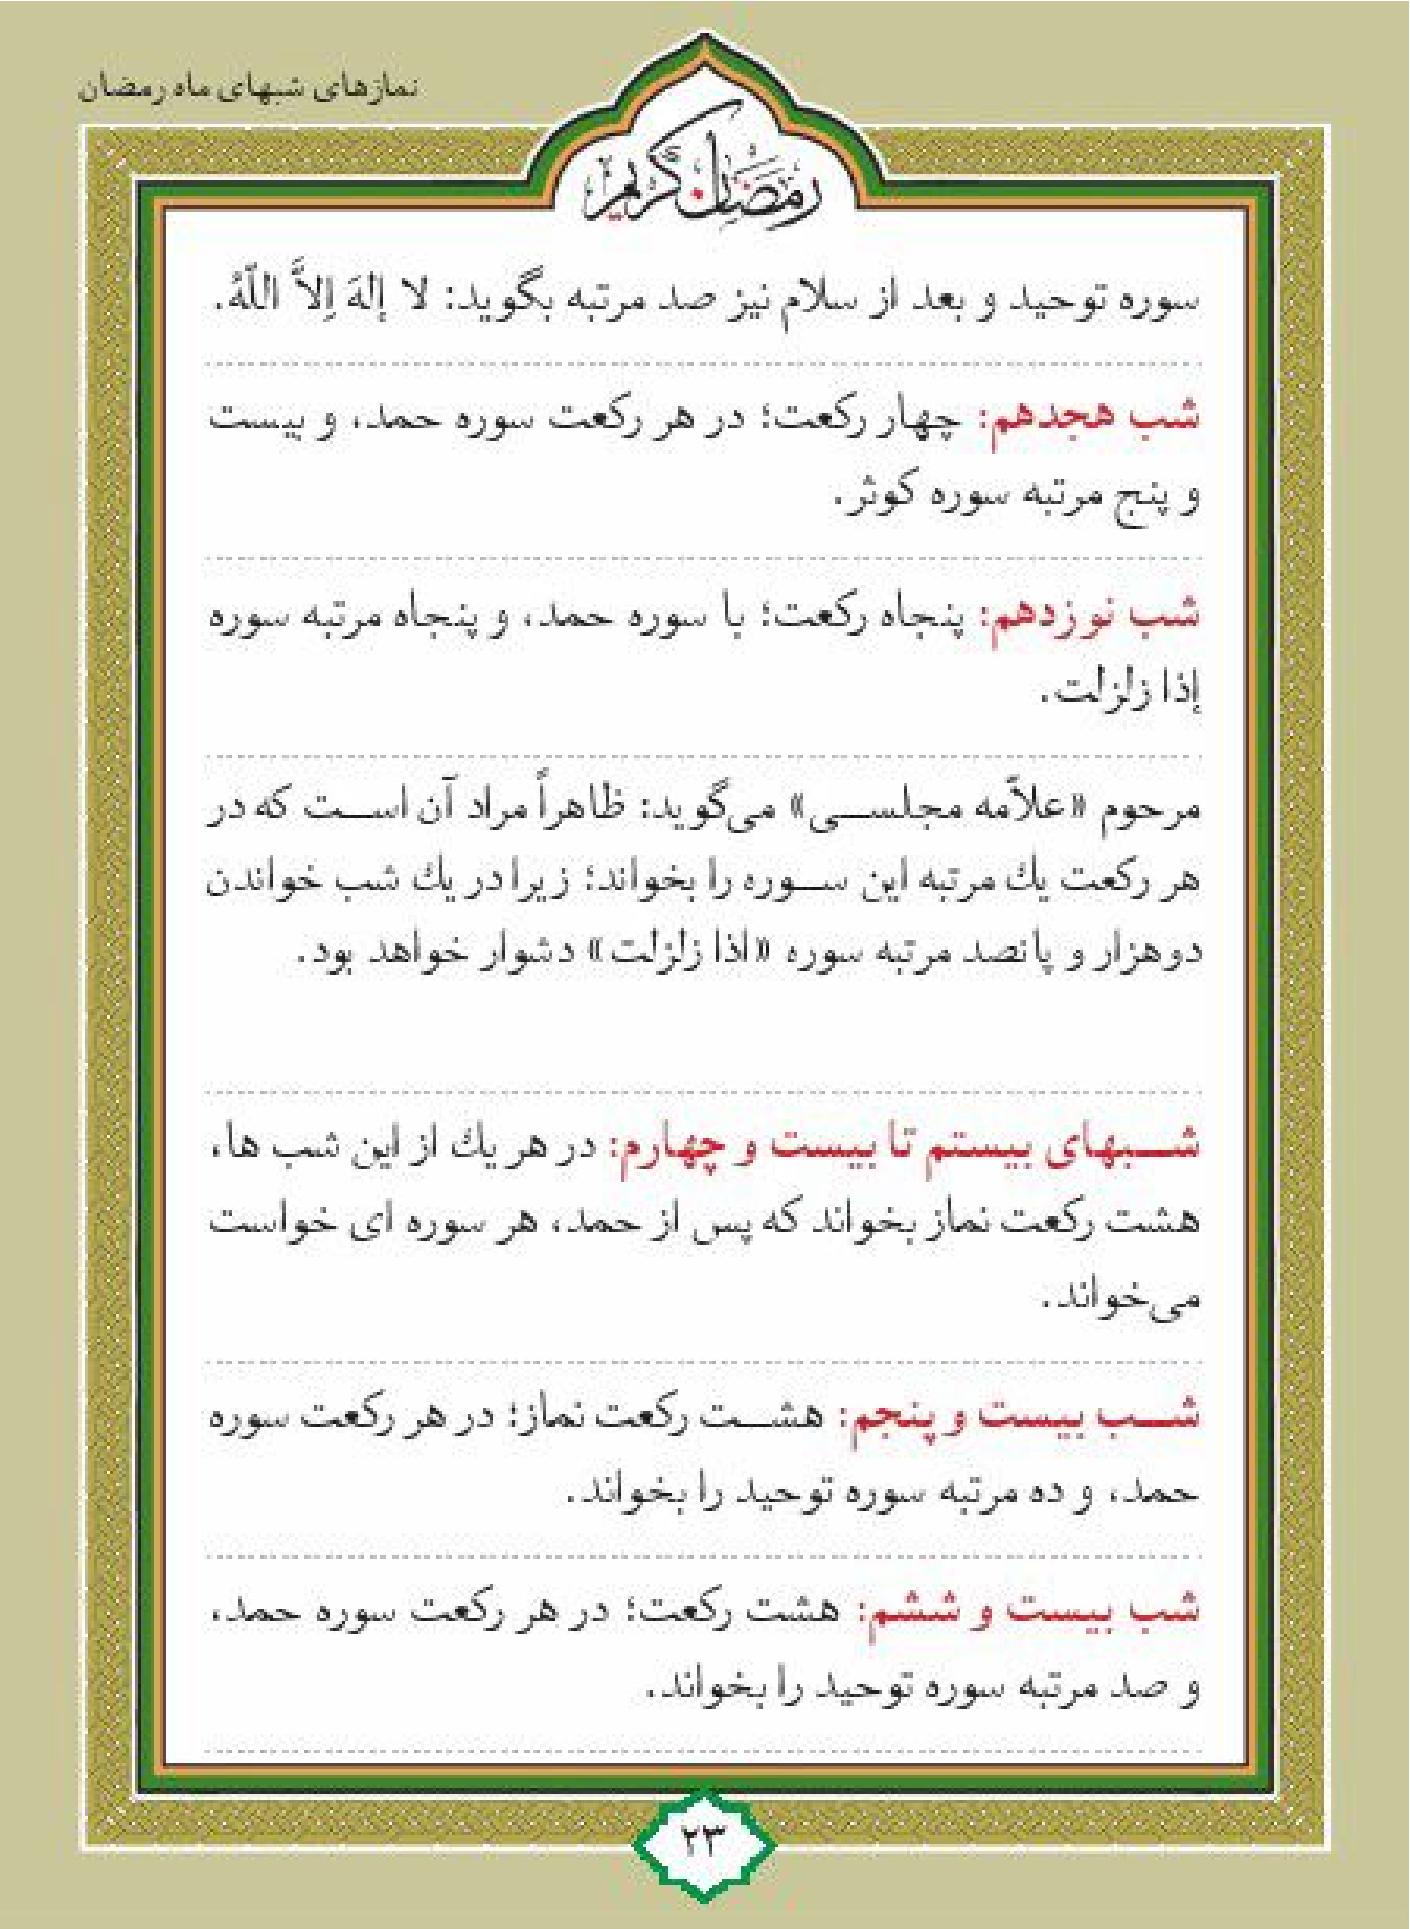 نمازهای شبهای ماه رمضان
رمضان کریم
سوره توحید و بعد از سلام نیز صد مرتبه بگوید: لا إلهَ إلاَّ اللّهُ.
شب هجدهم: چهار رکعت؛ در هر رکعت سوره حمد، و بیست
و پنج مرتبه سوره کوثر.
شب نوزدهم: پنجاه رکعت؛ با سوره حمد، و پنجاه مرتبه سوره
إذا زلزلت.
مرحوم «علاّمه مجلسی» می‌گوید: ظاهراً مراد آن است که در
هر رکعت یك مرتبه این سوره را بخواند؛ زیرا در یك شب خواندن
دوهزار و پانصد مرتبه سوره «اذا زلزلت» دشوار خواهد بود.
شبهای بیستم تا بیست و چهارم: در هر یك از این شب ها،
هشت رکعت نماز بخواند که پس از حمد، هر سوره ای خواست
می‌خواند.
شب بیست و پنجم: هشت رکعت نماز؛ در هر رکعت سوره
حمد، و ده مرتبه سوره توحید را بخواند.
شب بیست و ششم: هشت رکعت؛ در هر رکعت سوره حمد،
و صد مرتبه سوره توحید را بخواند.
۲۳